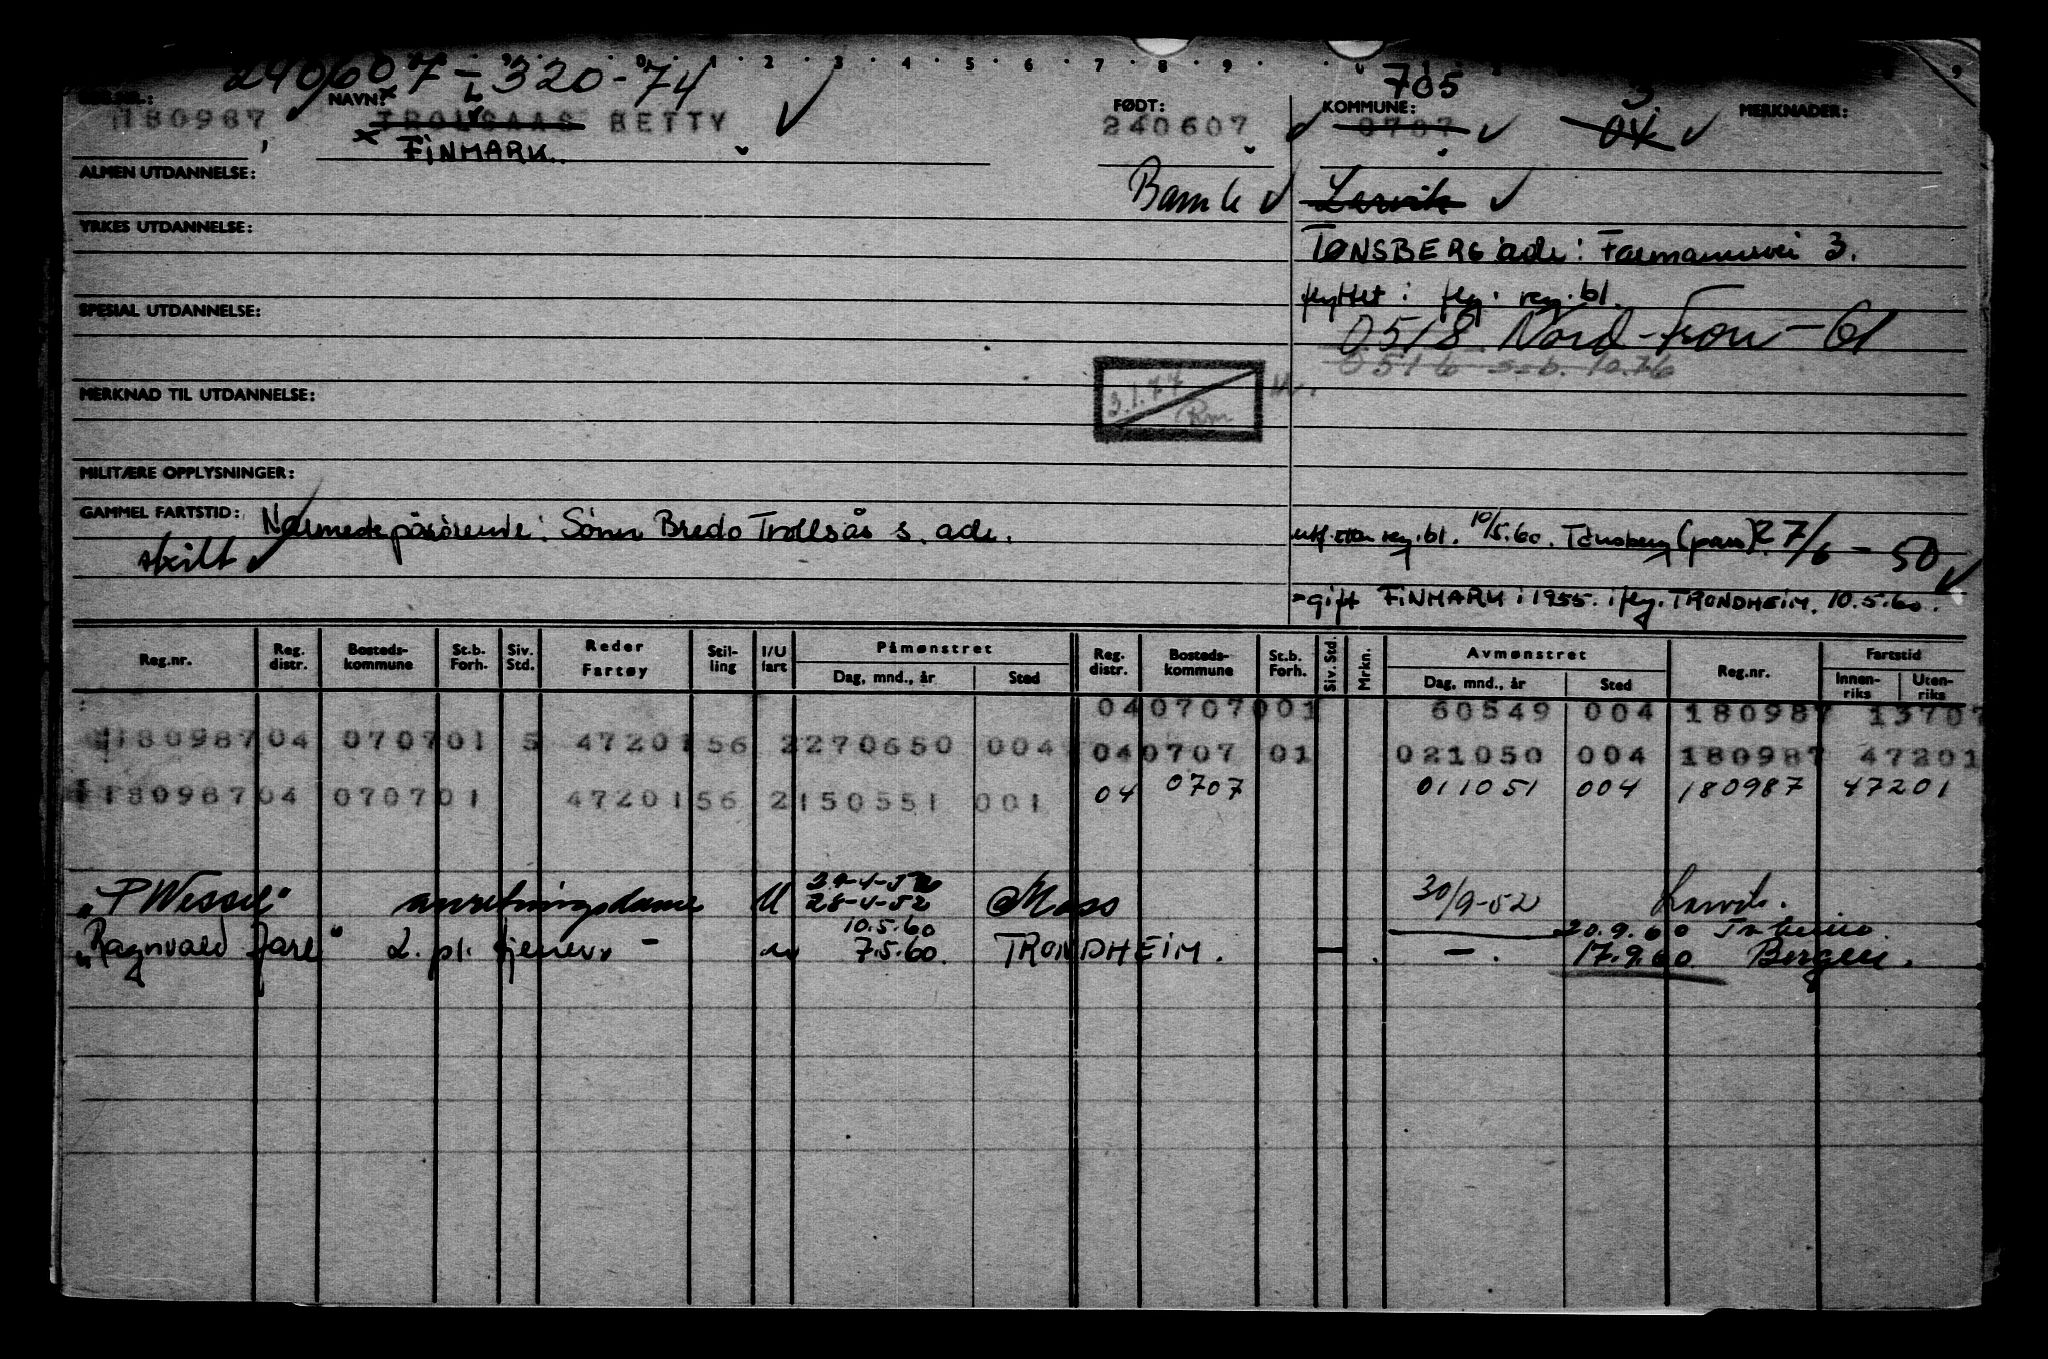 240607-320-74
705 3
NAVN: FØDT: KOMMUNE: MERKNADER:
180987 TROLSAAS BETTY 240607 0707 04
FINMARK.
ALMEN UTDANNELSE:
Bamle Larvik
YRKES UTDANNELSE:
TØNSBERG adr: Farmannsvei 3.
flyttet i flg. reg.bl.
SPESIAL UTDANNELSE:
0518 Nord-Fron - 61
0516 s.b. 10.76
3.1.77
MERKNAD TIL UTDANNELSE:
MILITÆRE OPPLYSNINGER:
GAMMEL FARTSTID: Nærmeste pårørende: Sønn Bredo Trollsås s. adr.
skilt
utf. reg.bl. 10/5.60. Tønsberg (pass) 27/6 - 50
= gift FINMARK i 1955. i flg. TRONDHEIM. 10.5.60.
Reg.nr. Reg. distr. Bosteds-kommune St.b. Forh. Siv. Std. Reder Fartøy Stil-ling I/U fart Påmønstret Dag, mnd., år Sted Reg. distr. Bosteds-kommune St.b. Forh. Siv. Std. Mrkn. Avmønstret Dag, mnd., år Sted Reg.nr. Fartstid Innen-riks Uten-riks
04 0707 001 60549 004 180987 13707
180987 04 0707 01 5 47201 56 2 270650 004 04 0707 01 021050 004 180987 47201
180987 04 0707 01 47201 56 2 150551 001 04 0707 011051 004 180987 47201
"P Wessel" anretningsdame U 28-4-52 Moss 30/9-52 Larvik.
10.5.60 20.9.60
"Ragnvald Jarl" 2. pl. 7.5.60. TRONDHEIM. - . - . 17.9.60 Bergen.